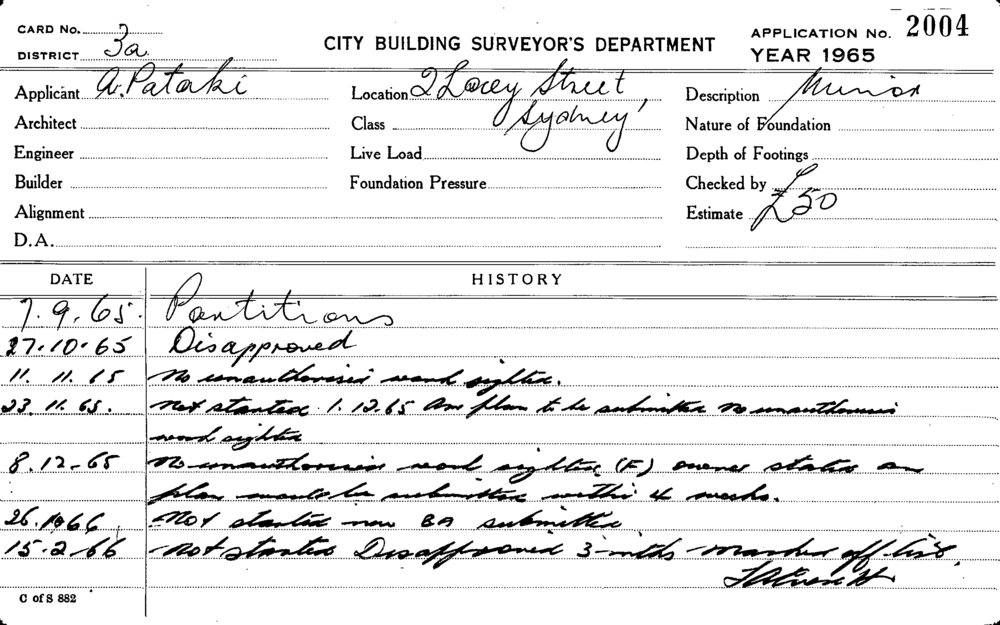 CARD No. 3a
DISTRICT
CITY BUILDING SURVEYOR'S DEPARTMENT
APPLICATION No. 2004
YEAR 1965
Applicant A. Pataki
Location 2 Lacey Street
Sydney
Description Minor
Architect
Class
Nature of Foundation
Engineer
Live Load
Depth of Footings
Builder
Foundation Pressure
Checked by
Alignment
Estimate £50
D.A.
DATE HISTORY
7.9.65. Partitions
27.10.65 Disapproved
11.11.65 No unauthorised work sighted.
23.11.65. Not started 1.12.65 Am plan to be submitted No unauthorised
work sighted
8.12.65 No unauthorised work sighted (F) owner states am
plan would be submitted within 4 weeks.
26.1.66 Not started new BA submitted
15.2.66 Not started Disapproved 3 mths marked off list.
C of S 882